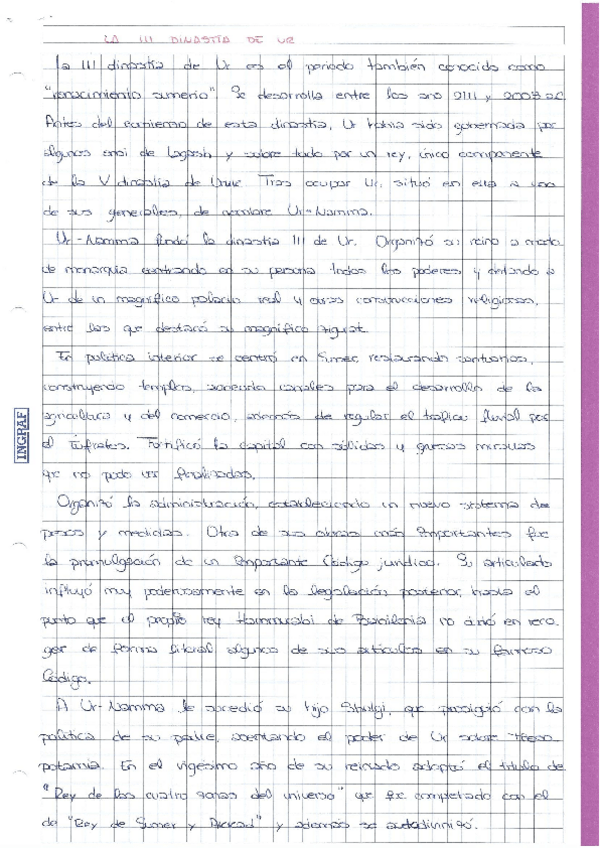 LA III DINASTÍA DE UR
La III dinastía de Ur es el periodo también conocido como
"renacimiento sumerio". Se desarrolla entre los año 2111 y 2003 a.C
Antes del comienzo de esta dinastía, Ur había sido gobernada por
algunos ensi de Lagash y sobre todo por un rey, único componente
de la V dinastía de Uruk. Tras ocupar Ur, situó en ella a uno
de sus generales, de nombre Ur-Namma.
Ur-Namma fundó la dinastía III de Ur. Organizó su reino a modo
de monarquía centrando en su persona todos los poderes y dotando a
Ur de un magnífico palacio real y otras construcciones religiosas,
entre las que destacó su magnífico zigurat.
En política interior se centró en Sumer, restaurando santuarios,
construyendo templos, abriendo canales para el desarrollo de la
agricultura y del comercio, además de regular el tráfico fluvial por
el Éufrates. Fortificó la capital con sólidas y gruesas murallas
que no pudo ver finalizadas.
Organizó la administración, estableciendo un nuevo sistema de
pesos y medidas. Otra de sus obras más importantes fue
la promulgación de un importante Código jurídico. Su articulado
influyó muy poderosamente en la legislación posterior, hasta el
punto que el propio rey Hammurabi de Babilonia no dudó en reco-
ger de forma literal algunos de sus artículos en su famoso
Código.
A Ur-Namma le sucedió su hijo Shulgi, que prosiguió con la
política de su padre, asentando el poder de Ur sobre Meso-
potamia. En el vigésimo año de su reinado adoptó el título de
"Rey de las cuatro zonas del universo" que fue completado con el
de "Rey de Sumer y Akkad" y además se autodivinizó.
INGRAF